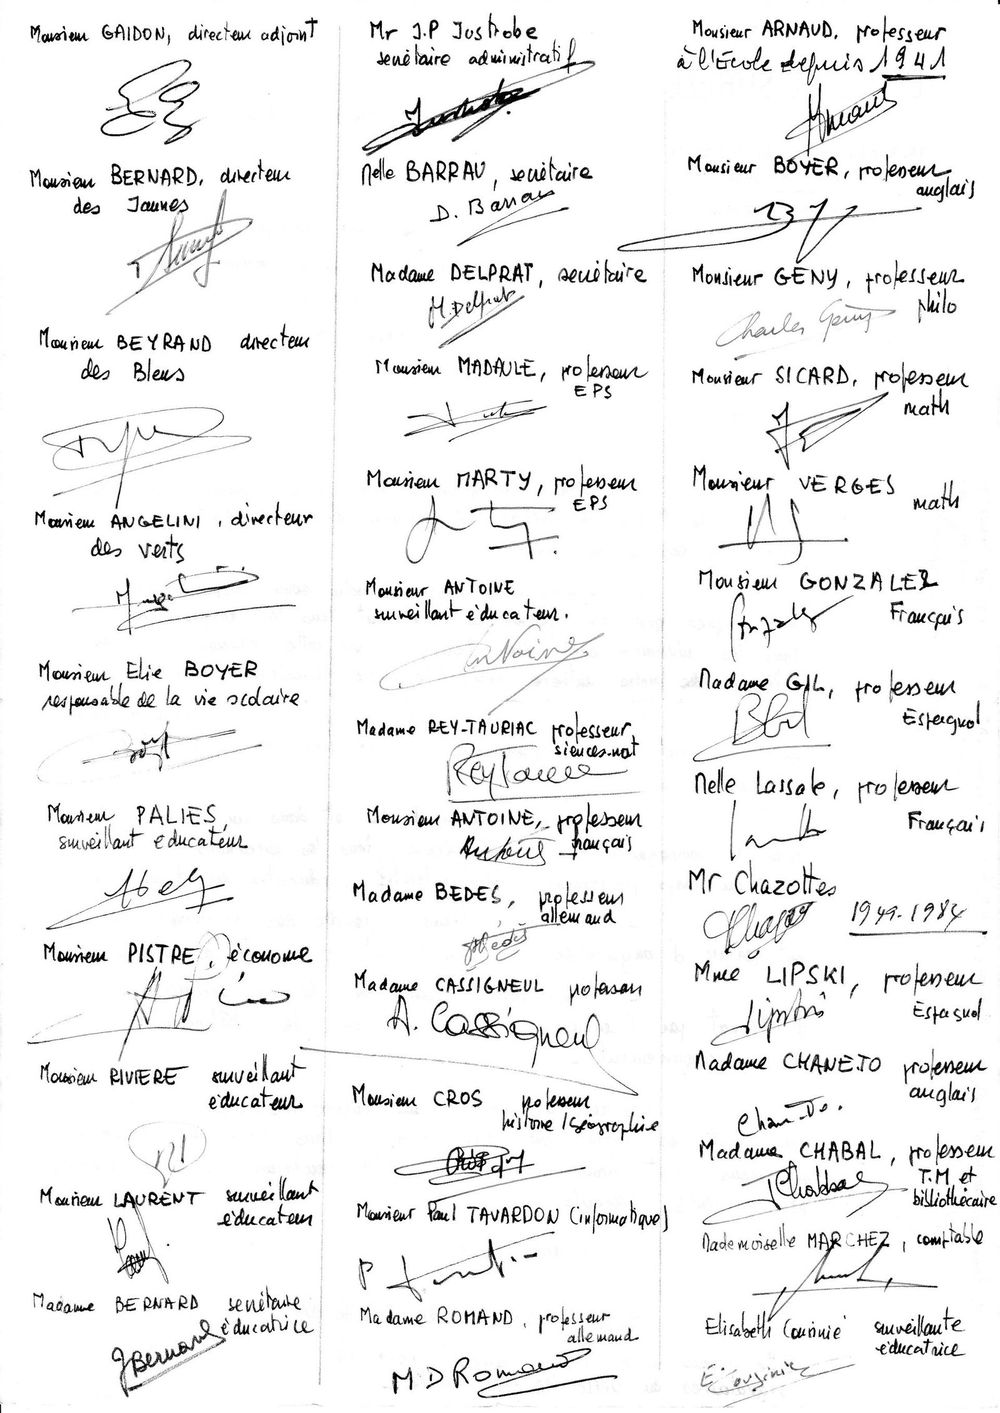 Monsieur GAIDON, directeur adjoint
Monsieur BERNARD, directeur
des Jaunes
Monsieur BEYRAND directeur
des Bleus
Monsieur ANGELINI, directeur
des verts
Monsieur Elie BOYER
responsable de la vie scolaire
Monsieur PALIES,
surveillant éducateur
Monsieur PISTRE, économe
Monsieur RIVIERE surveillant
éducateur
Monsieur LAURENT surveillant
éducateur
Madame BERNARD secrétaire
éducatrice
J Bernard
Mr J.P Justrobe
secrétaire administratif
Melle BARRAU, secrétaire
D. Barrau
Madame DELPRAT, secrétaire
M. Delprat
Monsieur MADAULE, professeur
EPS
Monsieur MARTY, professeur
EPS
Monsieur ANTOINE
surveillant éducateur.
Antoine
Madame REY-TAURIAC professeur
siences-nat
Monsieur ANTOINE, professeur
français
Madame BEDES, professeur
allemand
Madame CASSIGNEUL professeur
A. Cassigneul
Monsieur CROS professeur
histoire/Géographie
Monsieur Paul TAVARDON (informatique)
Madame ROMAND, professeur
allemand
M D Romand
Monsieur ARNAUD, professeur
à l'Ecole depuis 1941
Monsieur BOYER, professeur
anglais
Monsieur GENY, professeur
philo
Charles Geny
Monsieur SICARD, professeur
math
Monsieur VERGES
math
Monsieur GONZALEZ
Français
Madame GIL, professeur
Espagnol
Melle Lassale, professeur
Français
Mr Chazottes
1949-1984
Mme LIPSKI, professeur
Espagnol
Lipski
Madame CHANEJO professeur
anglais
Madame CHABAL, professeur
T.M et
bibliothécaire
Mademoiselle MARCHEZ, comptable
Elisabeth Cousinié surveillante
éducatrice